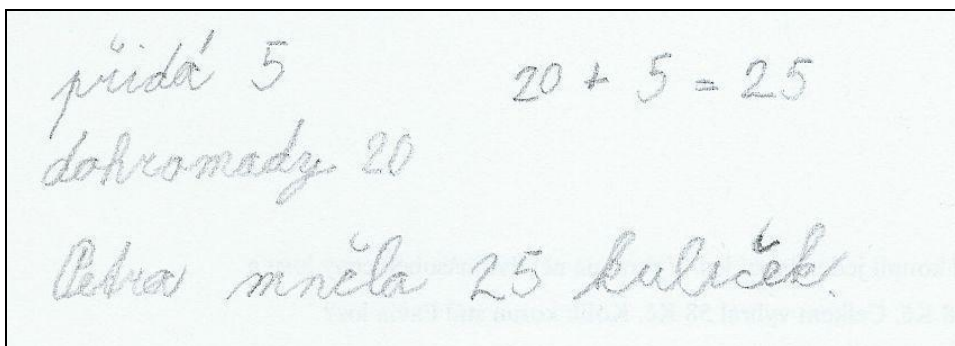 přidá 5 20 + 5 = 25
dohromady 20
Petra mněla 25 kuliček.